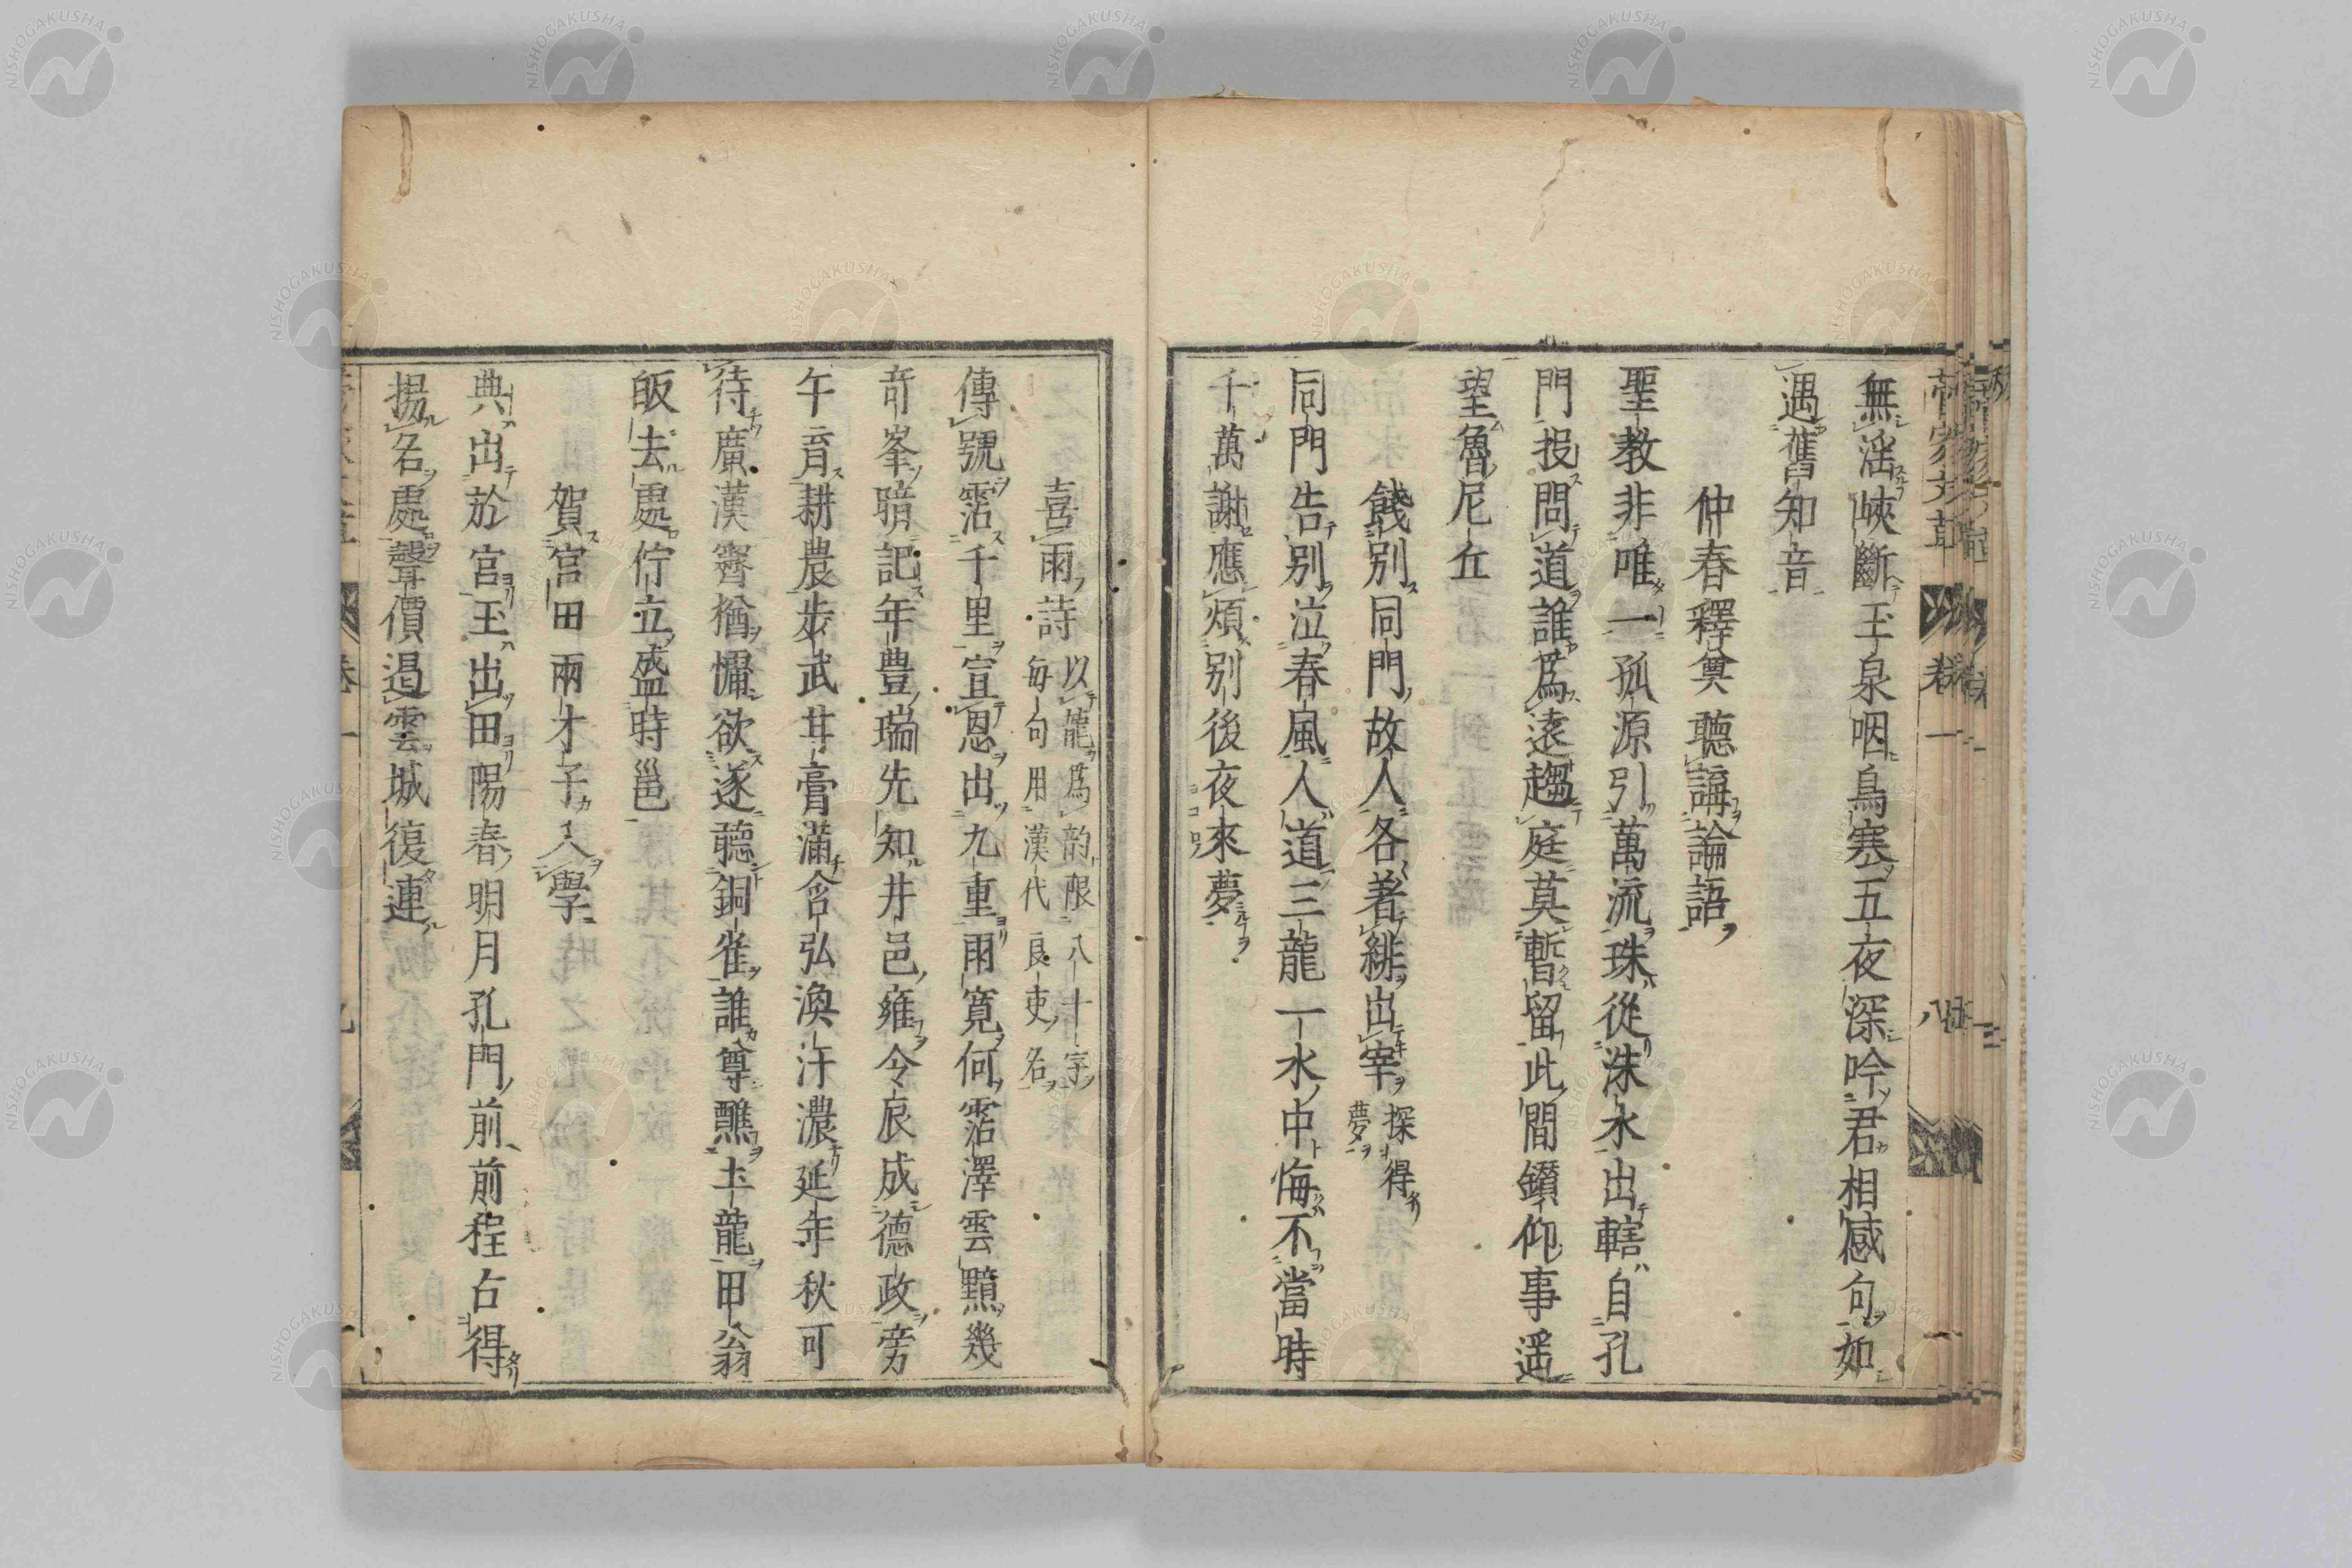 無滛峽斷玉泉咽鳥塞五夜深吟君相感句如
遇舊知音
仲春釋奠聽講論語
聖教非唯一孤源引萬流珠從洙水出轄自孔
門投問道誰爲遠趨庭莫暫留此間鑚仰事遥
望魯尼丘
餞別同門故人各著緋出宰 探得
夢
同門告別泣春風人道三龍一水中悔不當時
千萬謝應煩別後夜來夢
喜雨詩 以龍爲韵限八十字
毎句用漢代良吏名
傳號霑千里宣恩出九重雨寛何霑澤雲黯幾
奇峯暗記年豊瑞先知井邑雍令辰成德政旁
午育耕農步武甘膏滿含弘渙汗濃延年秋可
待廣漢霽猶慵欲逐聽銅雀誰尊醮土龍田翁
皈去處佇立盛時邕
賀宮田兩才子入學
典出於宮玉出田陽春明月孔門前前程占得
揚名處聲價過雲城復連
卷一
八
NISHOGAKUSHA